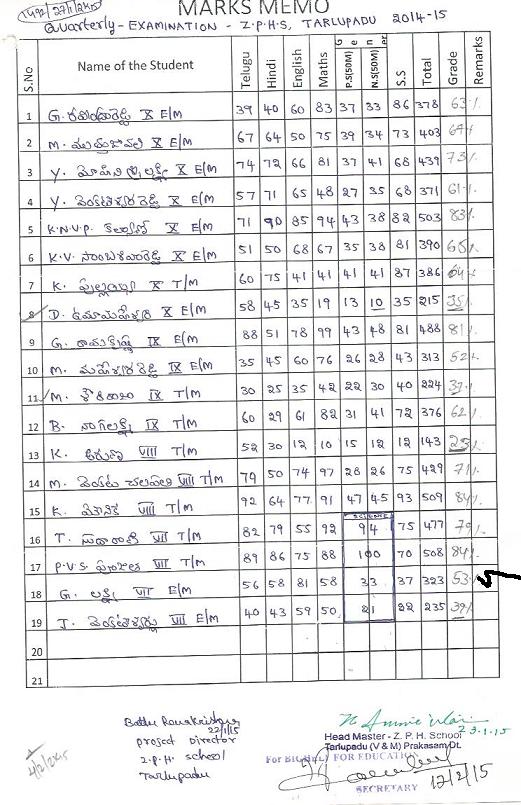 MARKS MEMO
Quarterly - EXAMINATION - Z.P.H.S, TARLUPADU 2014-15
S.No Name of the Student Telugu Hindi English Maths P.S(50M) N.S(50M) S.S Total Grade Remarks
1 G. X E/M 39 40 60 83 37 33 86 378 63%
2 M. X E/M 67 64 50 75 39 34 73 403
3 Y. X E/M 74 72 66 81 37 41 68 439 73%
4 Y. వెంకటేశ్వరరెడ్డి X E/M 57 71 65 48 27 35 68 371 61%
5 K.N.V.P. కళ్యాణి X E/M 71 90 85 94 43 38 82 503 83%
6 K.V. సాంబశివారెడ్డి X E/M 51 50 68 67 35 38 81 390
7 K. పుల్లయ్య X T/M 60 75 41 41 41 41 87 386 64%
8 D. ఉమామహేశ్వరి X E/M 58 45 35 19 13 10 35 215 35%
9 G. రామకృష్ణ IX E/M 88 51 78 99 43 48 81 488 81%
10 M. మహేశ్వరరెడ్డి IX E/M 35 45 60 76 26 28 43 313 52%
11 M. IX T/M 30 25 35 42 22 30 40 224 37%
12 B. నాగలక్ష్మి IX T/M 60 29 61 82 31 41 72 376 62%
13 K. అరుణ VIII T/M 52 30 12 10 15 12 12 143 25%
14 M. వెంకట చలపతి VIII T/M 79 50 74 97 28 26 75 429 71%
15 K. మౌనిక VIII T/M 92 64 77 91 47 45 93 509 84%
SCIENCE
16 T. VII T/M 82 79 55 92 94 75 477 79%
17 P.V.S. VII T/M 89 86 75 88 100 70 508 84%
18 G. లక్ష్మి VII E/M 56 58 81 58 33 37 323 53%
19 J. వెంకటేశ్వర్లు VII E/M 40 43 59 50 21 22 235 39%
20
21
Battu Ramakrishna
22/1/15
project Director
Z.P.H. school
Tarlupadu
23.1.15
Head Master - Z. P. H. School
Tarlupadu (V & M) Prakasam Dt.
For BIG HELP FOR EDUCATION
SECRETARY
12/2/15